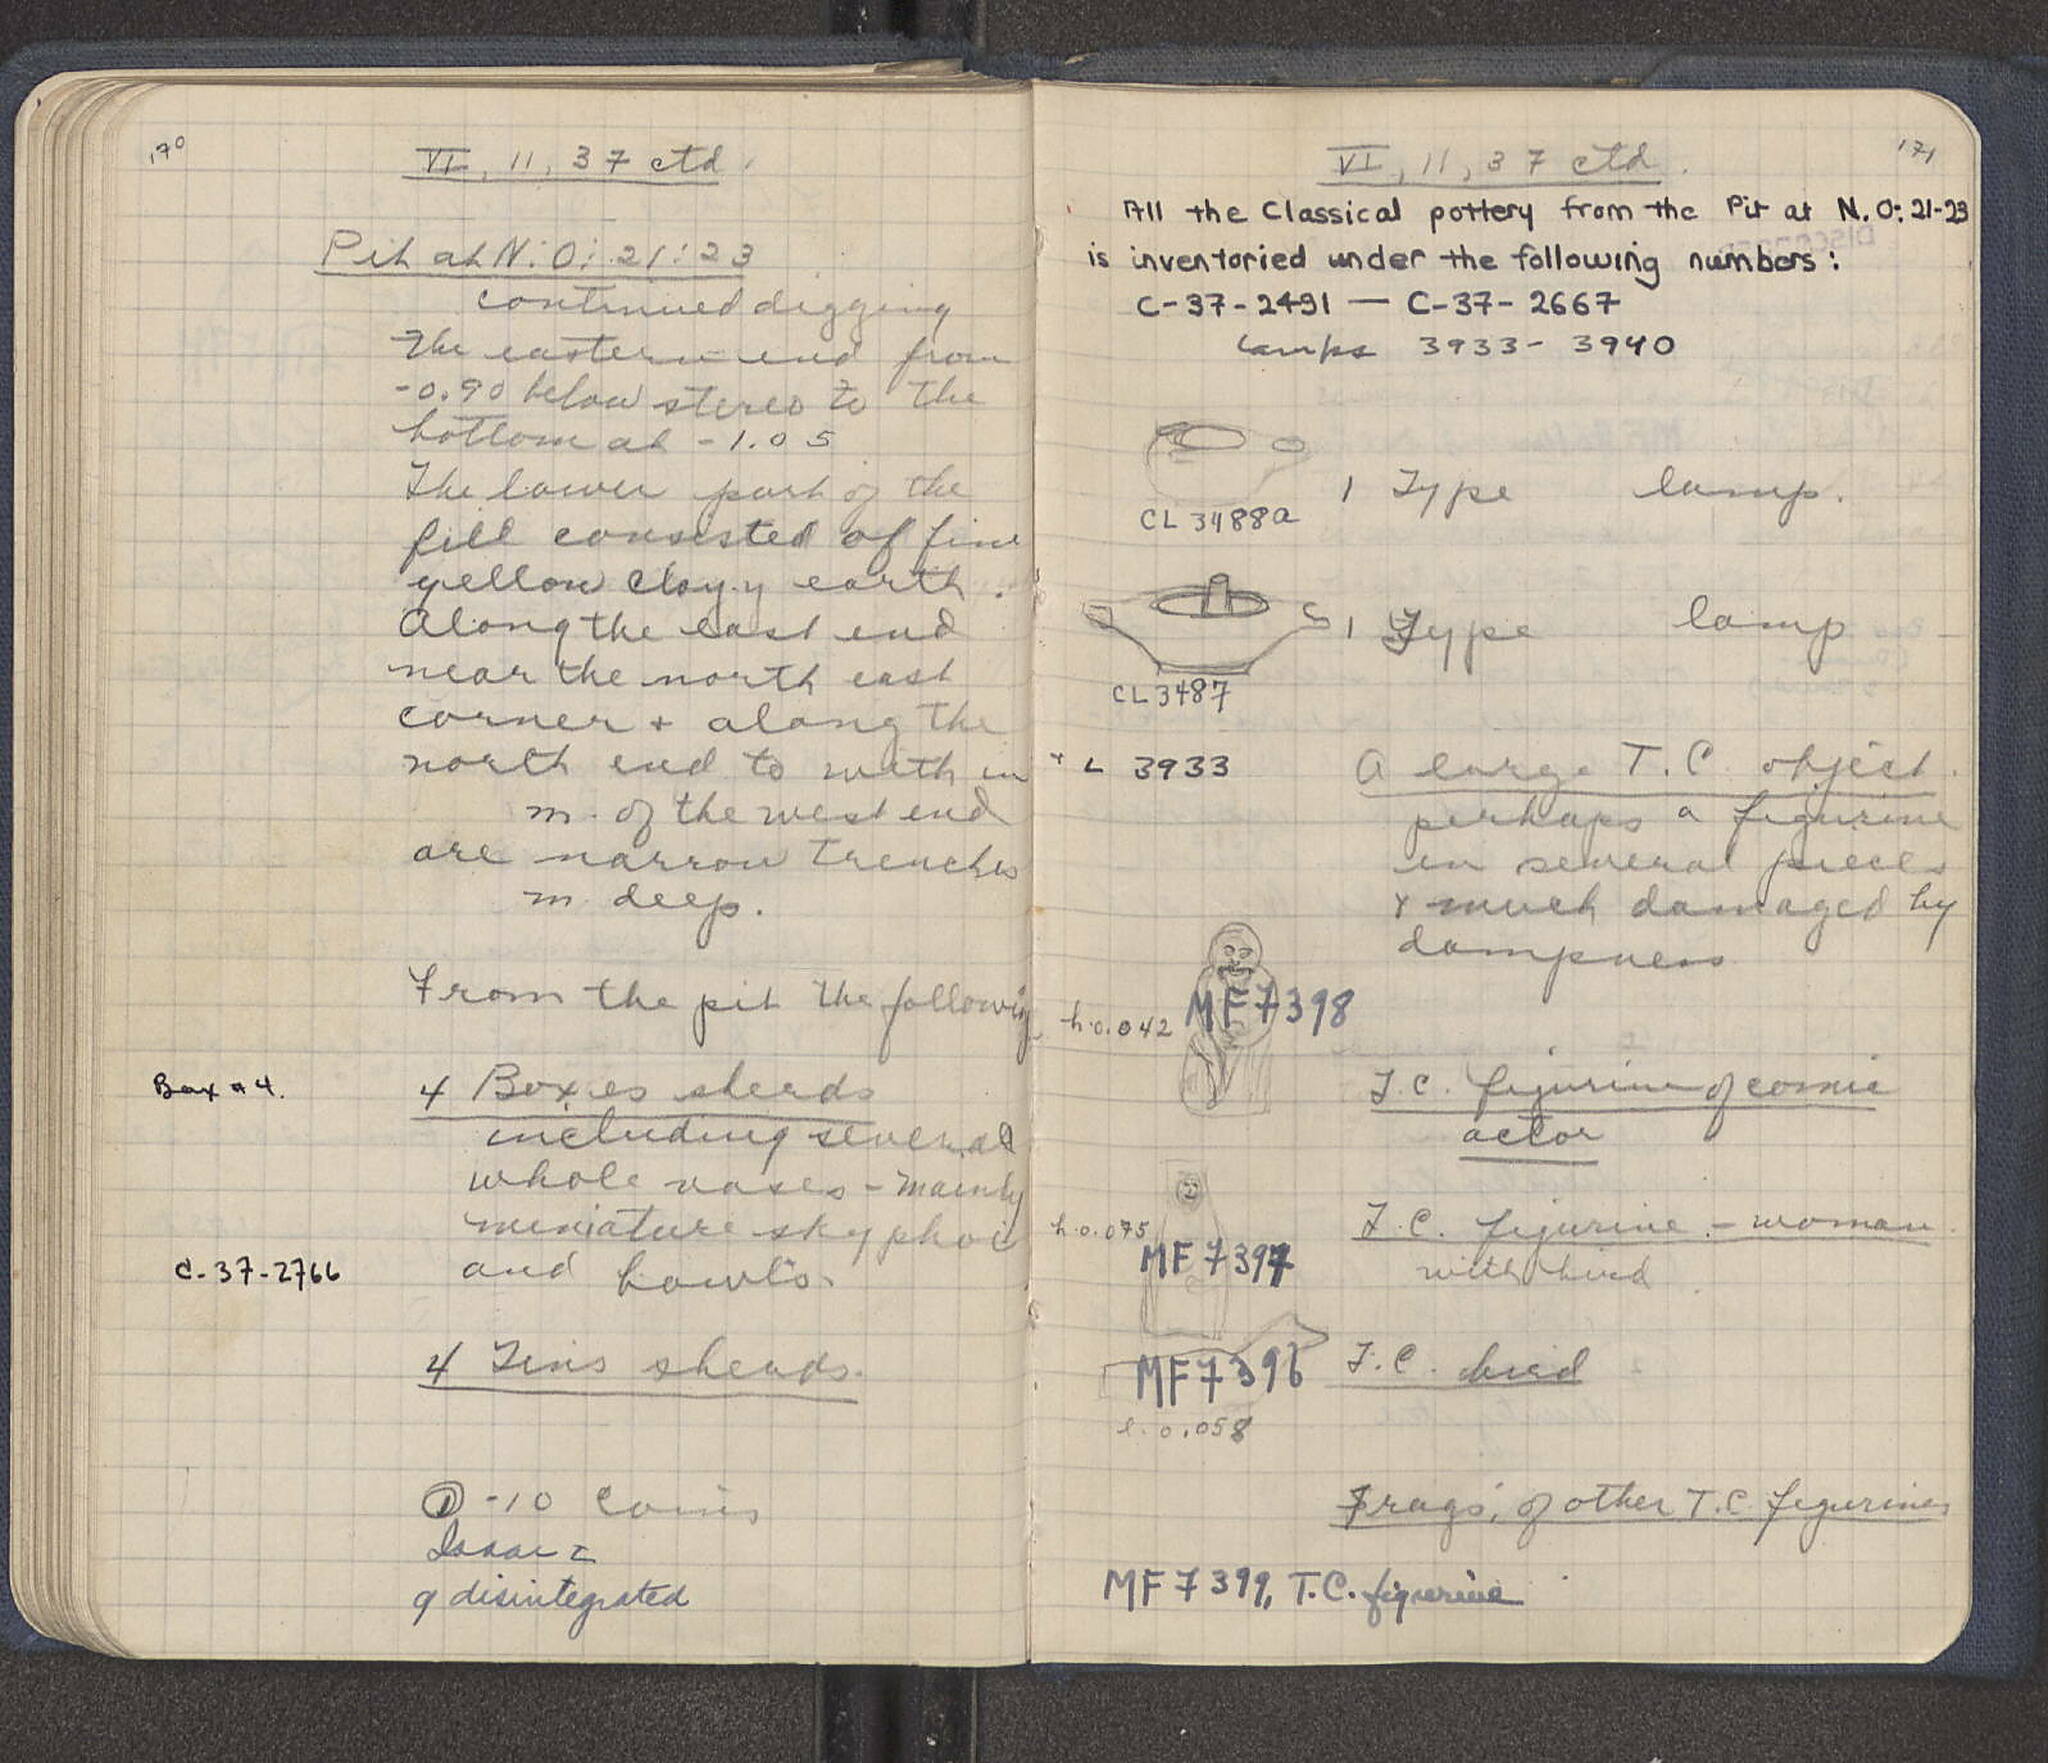 170
VI, 11, 37 ctd.
Pit at N:O: 21:23
continued digging
the eastern end from
-0.90 below stereo to the
bottom at -1.05
The lower part of the
fill consisted of fine
yellow clayy earth.
Along the east end
near the north east
corner + along the
north end to with in
m. of the west end
are narrow trenches
m deep.
From the pit the following
Box #4.
4 Boxes sherds
including several
whole vases - mainly
miniature skyphoi
C-37-2766
and bowls.
4 Tins sherds.
① -10 Coins
9 disintegrated
171
VI, 11, 37 ctd.
All the Classical pottery from the Pit at N.O: 21-23
is inventoried under the following numbers:
C-37-2491 — C-37-2667
Lamps 3933-3940
1 Type lamp.
CL 3488a
1 Type lamp
CL 3487
+ L 3933
A large T.C. object.
perhaps a figurine
in several pieces
+ much damaged by
dampness
h.0.042 MF 7398
T.C. figurine of comic
actor
h.0.075
T.C. figurine - woman
MF 7397
with bird
MF 7396
T.C. bird
l. 0.058
Frags. of other T.C. figurines
MF 7399, T.C. figurine